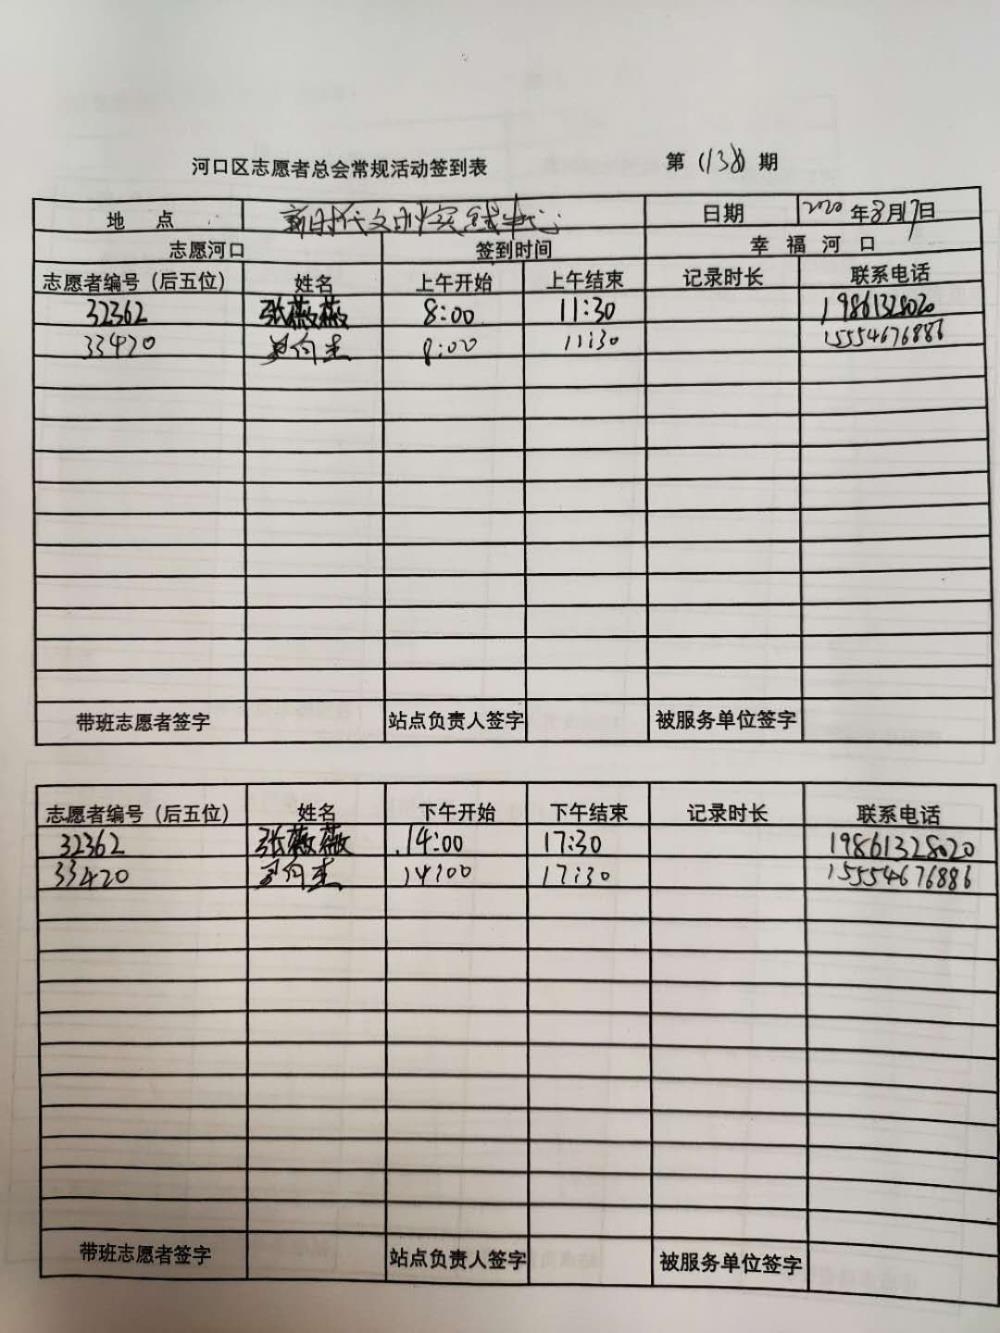 河口区志愿者总会常规活动签到表 第(138)期
地点 新时代文明实践中心 日期 2020年8月17日
志愿河口 签到时间 幸福河口
志愿者编号（后五位） 姓名 上午开始 上午结束 记录时长 联系电话
32362 张薇薇 8:00 11:30 19861328020
33420 8:00 11:30 15554676886
带班志愿者签字 站点负责人签字 被服务单位签字
志愿者编号（后五位） 姓名 下午开始 下午结束 记录时长 联系电话
32362 张薇薇 14:00 17:30 19861328020
33420 14:00 17:30 15554676886
带班志愿者签字 站点负责人签字 被服务单位签字